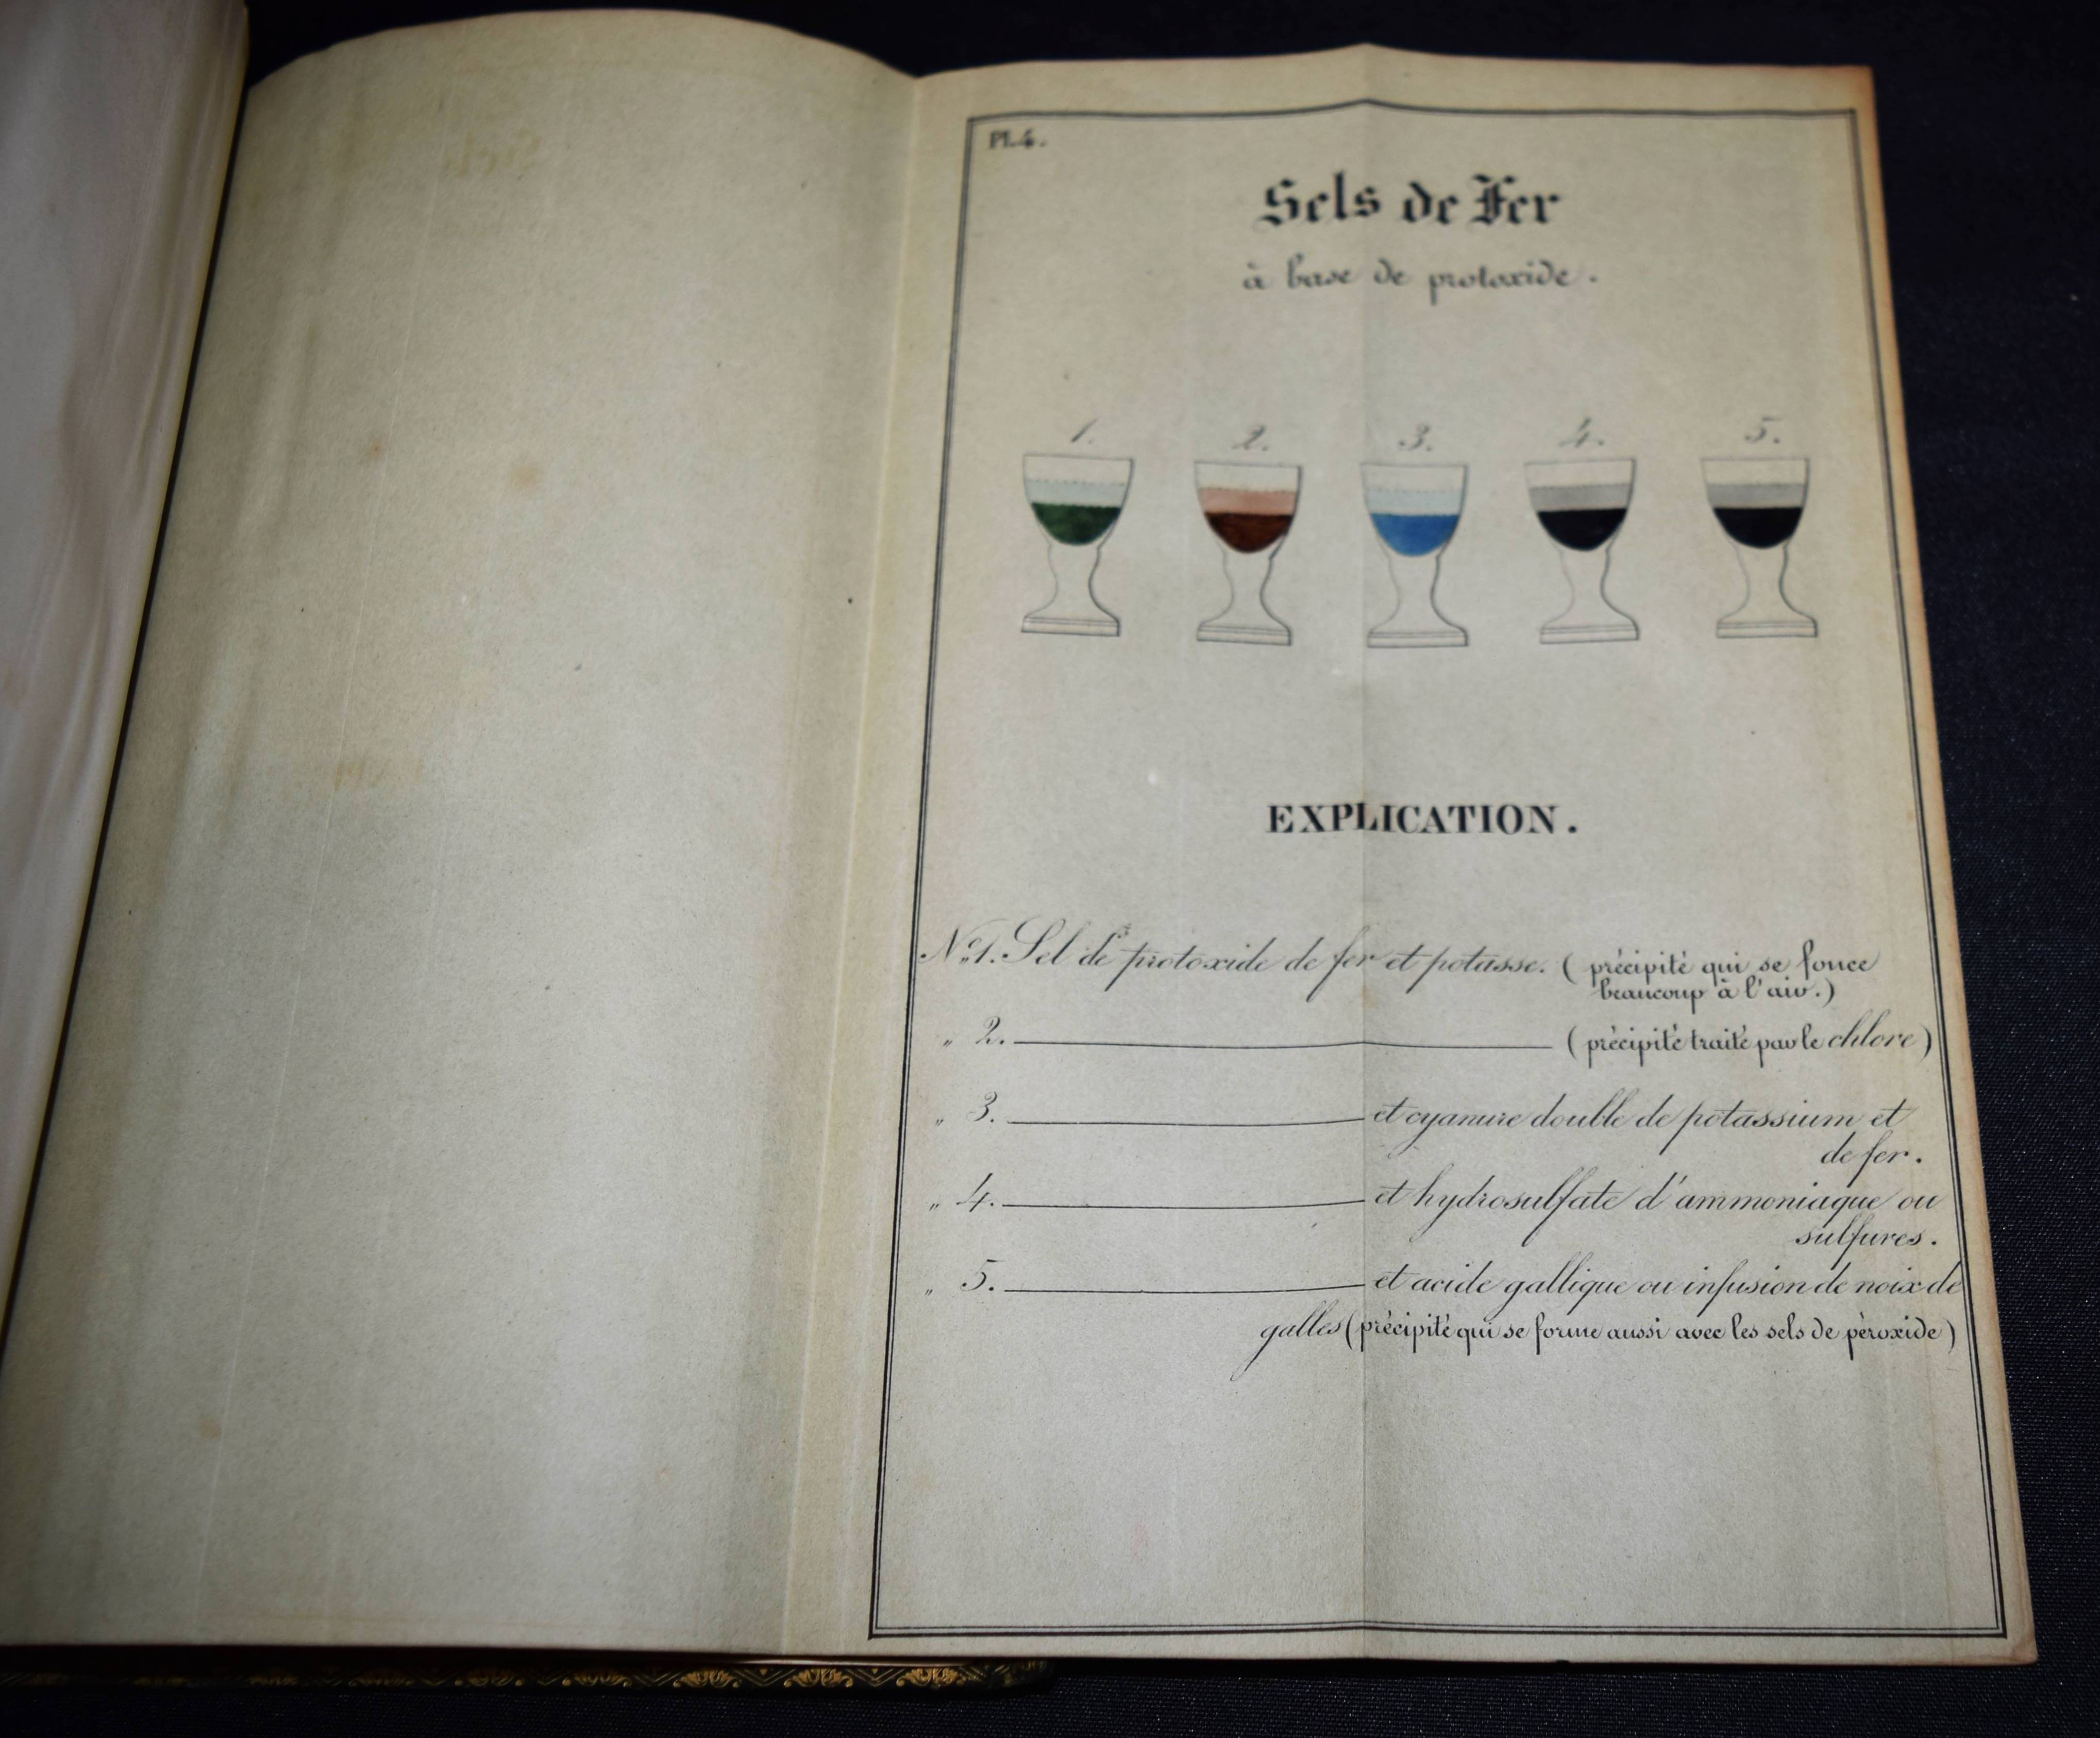 Pl. 4.
Sels de Fer
à base de protoxide.
1. 2. 3. 4. 5.
EXPLICATION.
N.º 1. Sel de protoxide de fer et potasse. ( précipité qui se fonce
beaucoup à l'air.)
„ 2. ( précipité traité par le chlore )
„ 3. et cyanure double de potassium et
de fer.
„ 4. et hydrosulfate d'ammoniaque ou
sulfures.
„ 5. et acide gallique ou infusion de noix de
galles ( précipité qui se forme aussi avec les sels de péroxide )